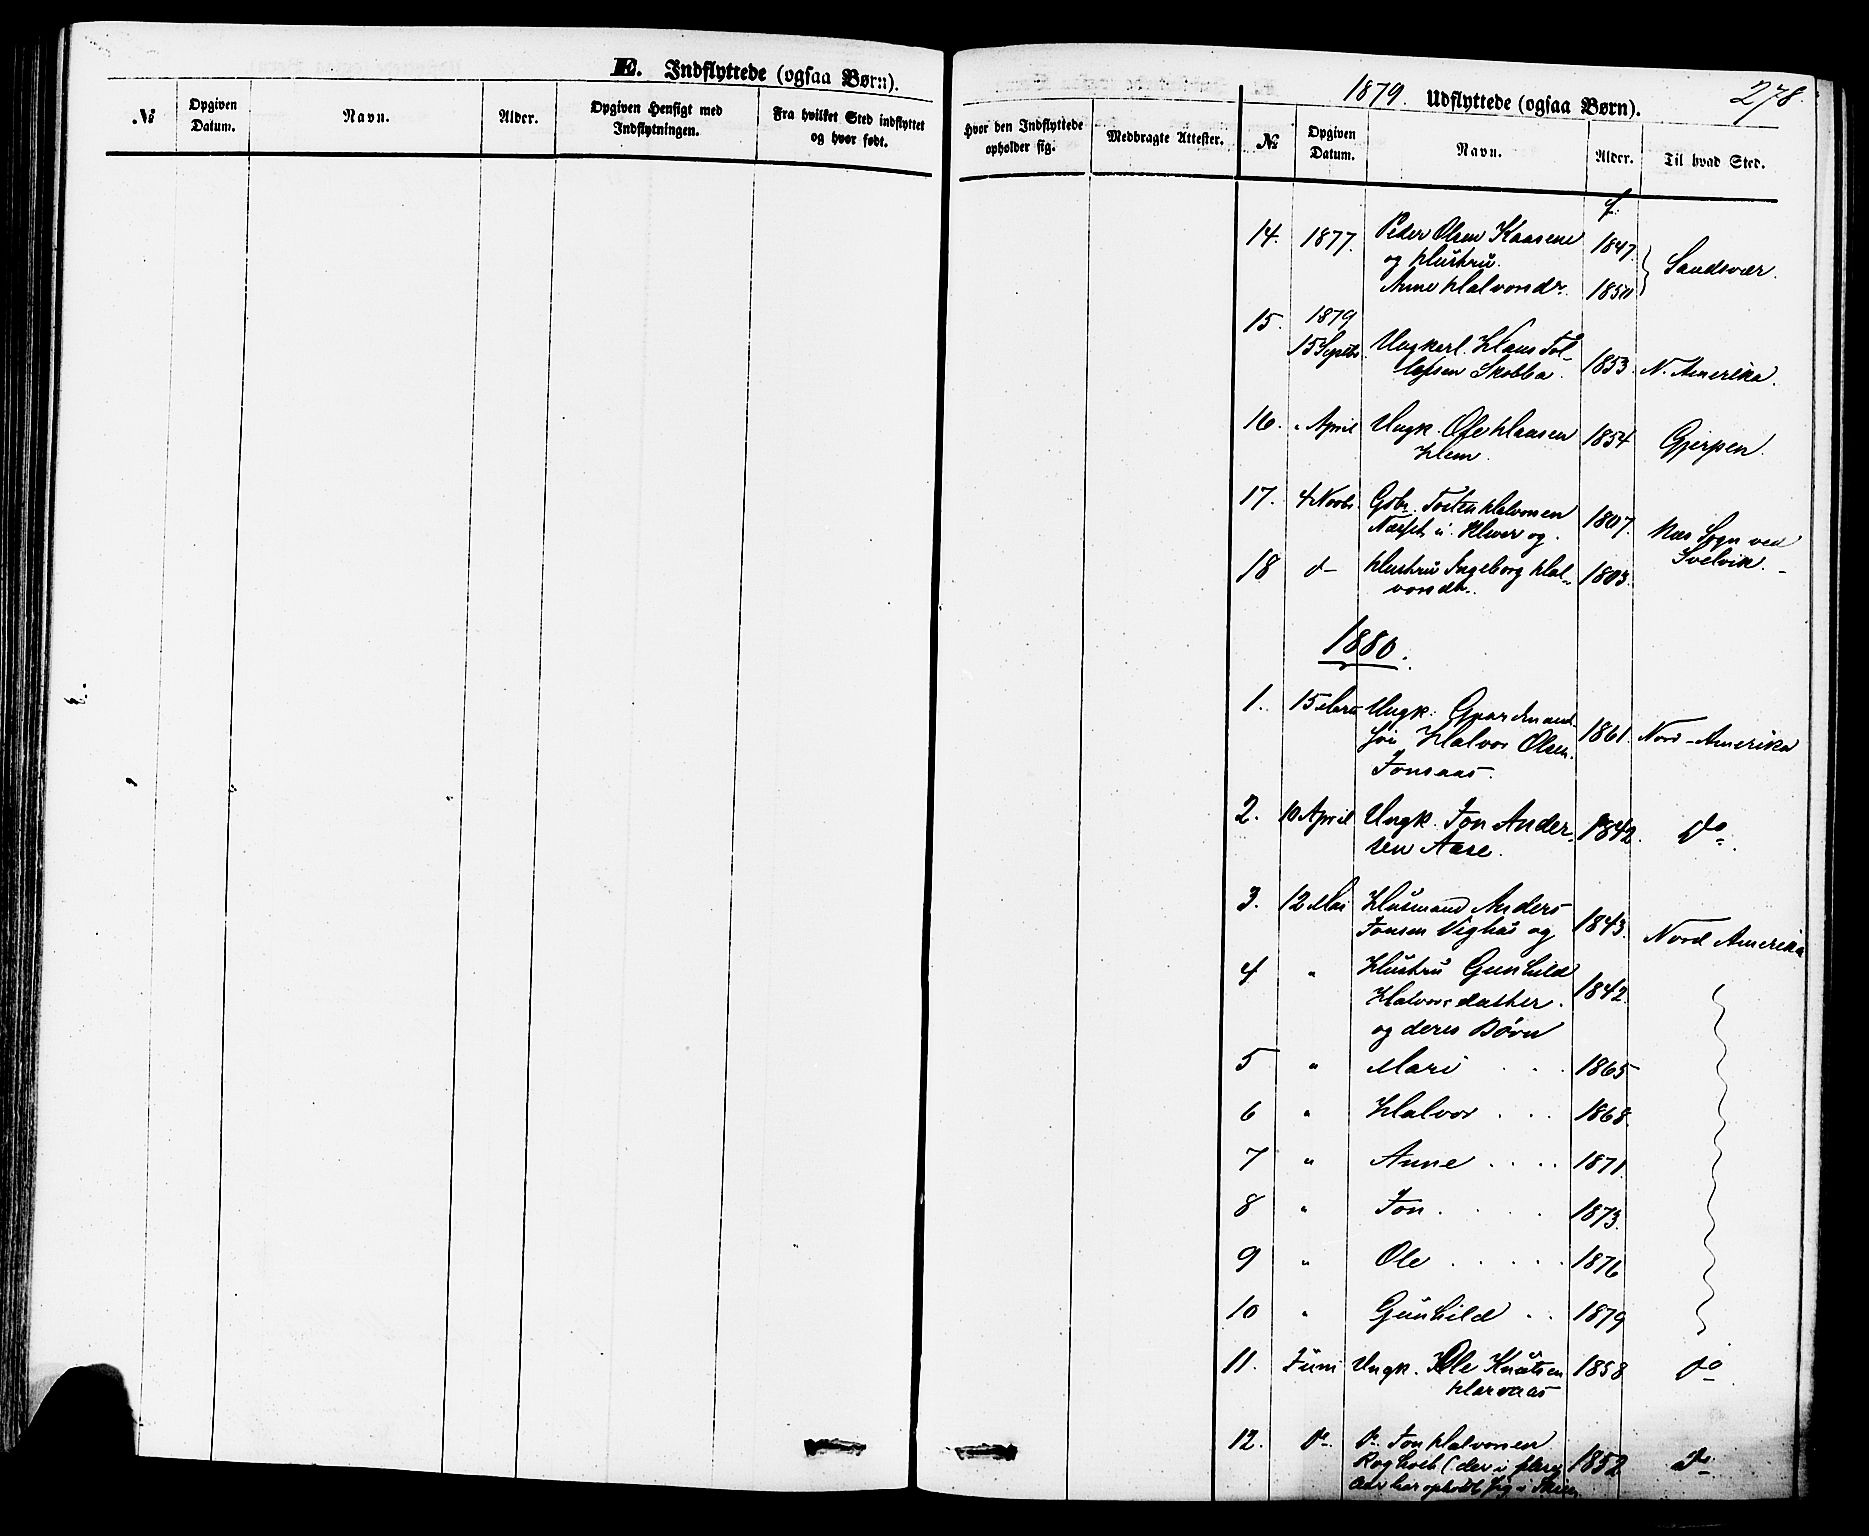 E. Indflyttede (ogsaa Børn).
№ Opgiven Datum. Navn. Alder. Opgiven Hensigt med Indflytningen. Fra hvilket Sted indflyttet og hvor født.
Hvor den Indflyttede opholder sig. Medbragte Attester.
1879. Udflyttede (ogsaa Børn). 278.
№ Opgiven Datum. Navn. Alder. Til hvad Sted.
f.
14. 1877. Peder Olsen Kaasene 1847.
og Hustru. Sandsvær.
Anne Halvorsdr. 1850
15. 1879
15 Septbr. Ungkarl. Hans Tol-
lefsen Skobba. 1853. N. Amerika.
16. " April Ungk. Ole Hansen 1854 Gjerpen.
Hem.
17. 4 Novbr. Gbr. Tosten Halvorsen 1807.
og. Næs Sogn ved
18 d- Hustru Ingeborg Hal- 1803. Svelvik.
vorsdr.
1880.
1. 15 Ungk. Gaardmand
Halvor Olsen 1861. Nord-Amerika
Jonsaas.
2. 10 April Ungk. Jon Ander- 1842. do.
sen Aase.
3. 12 Mai Husmand Anders
Jonsen og 1843. Nord Amerika
4 " Hustru Gunhild
Halvorsdatter. 1842.
og deres Børn
5 " Mari . . . 1865
6 " Halvor . . . 1868.
7 " Anne . . . . 1871.
8 " Jon . . . . 1873.
9 " Ole . . . . . 1876
10 " Gunhild . . 1879
11. Juni Ungk. Ole Knutsen 1858 do
Harvaas
12. do. do. Jon Halvorsen
(der i flere 1852 do
Aar har opholdt sig i Skien